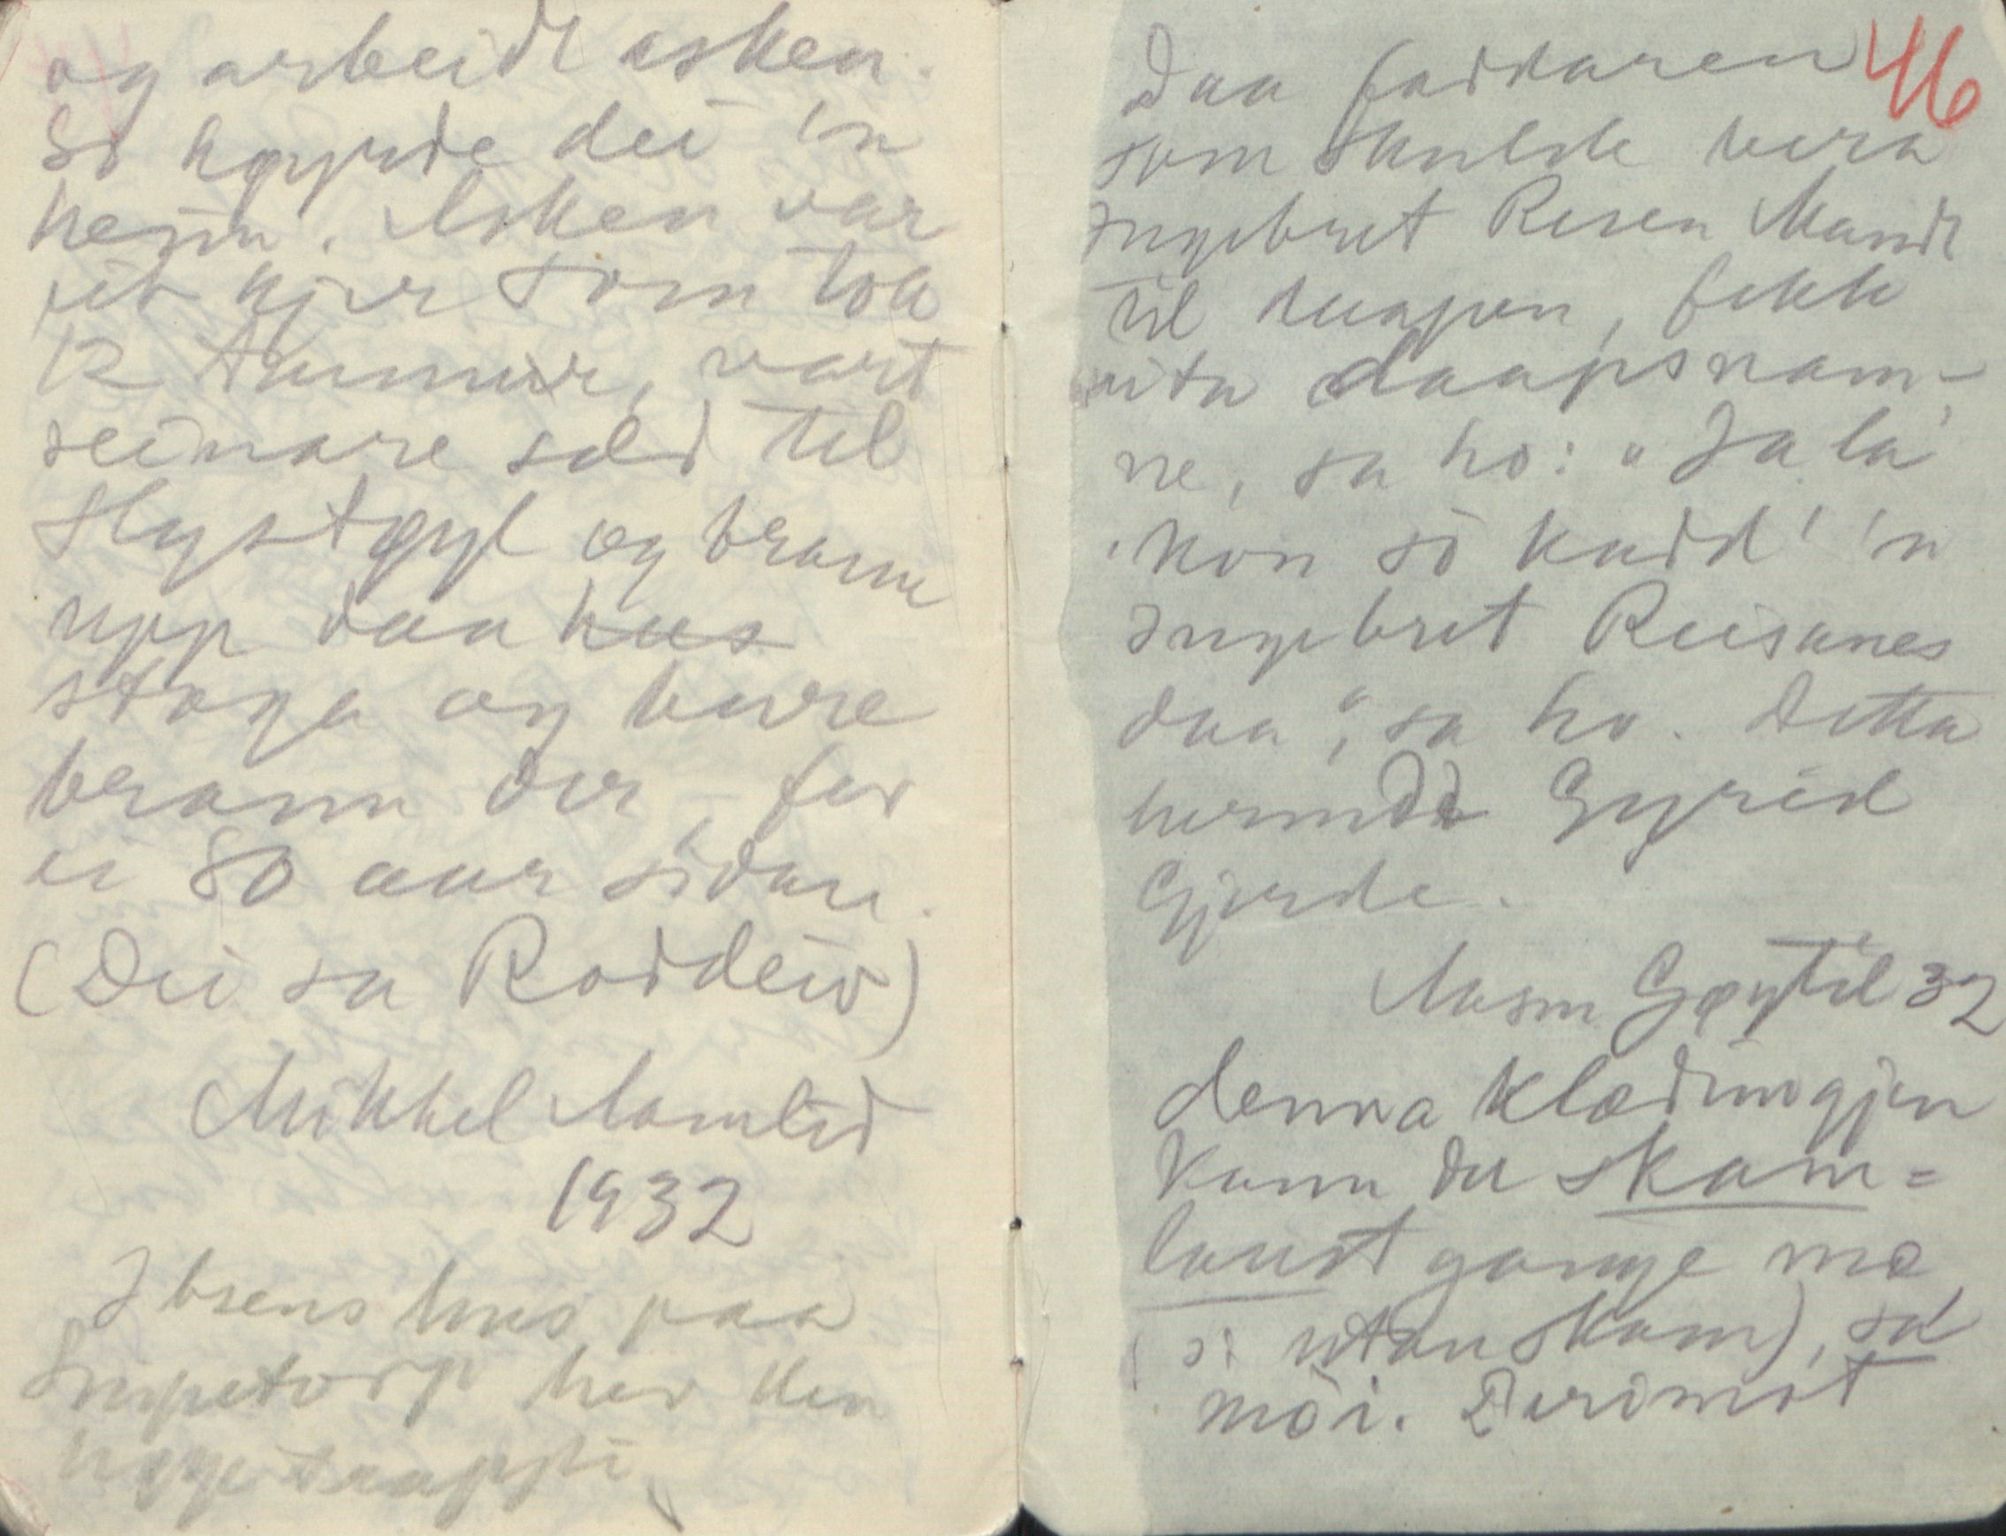 og arbeidt asken.
So køyrde dei 'n
heim. Asken var
eit kjer som tok
12 tunnur, vart
seinare seld til
Flystøyl og brann
upp daa hus
stoga og bure
brann der for
ei 80 aar sidan.
(Dei sa Roddeiv)
Mikkel Aamlid
1932
Ibsens hus paa
Snipetorp hev den
høge trappi
46
Daa faddaren
som skulde bera
Ingebret Resen Mandt
til daapen, fekk
vita daapsnam-
ne, sa ho: "Ja la
kon so kadd' 'n
Ingebret Reisanes
daa", sa ho. Detta
hermde Gyrid
Gjerde.
Aasm Gøytil 32
denna klædningjen
kann du skam=
laust gange mæ
(ɔ: utan skam), sa
mói. Derimot